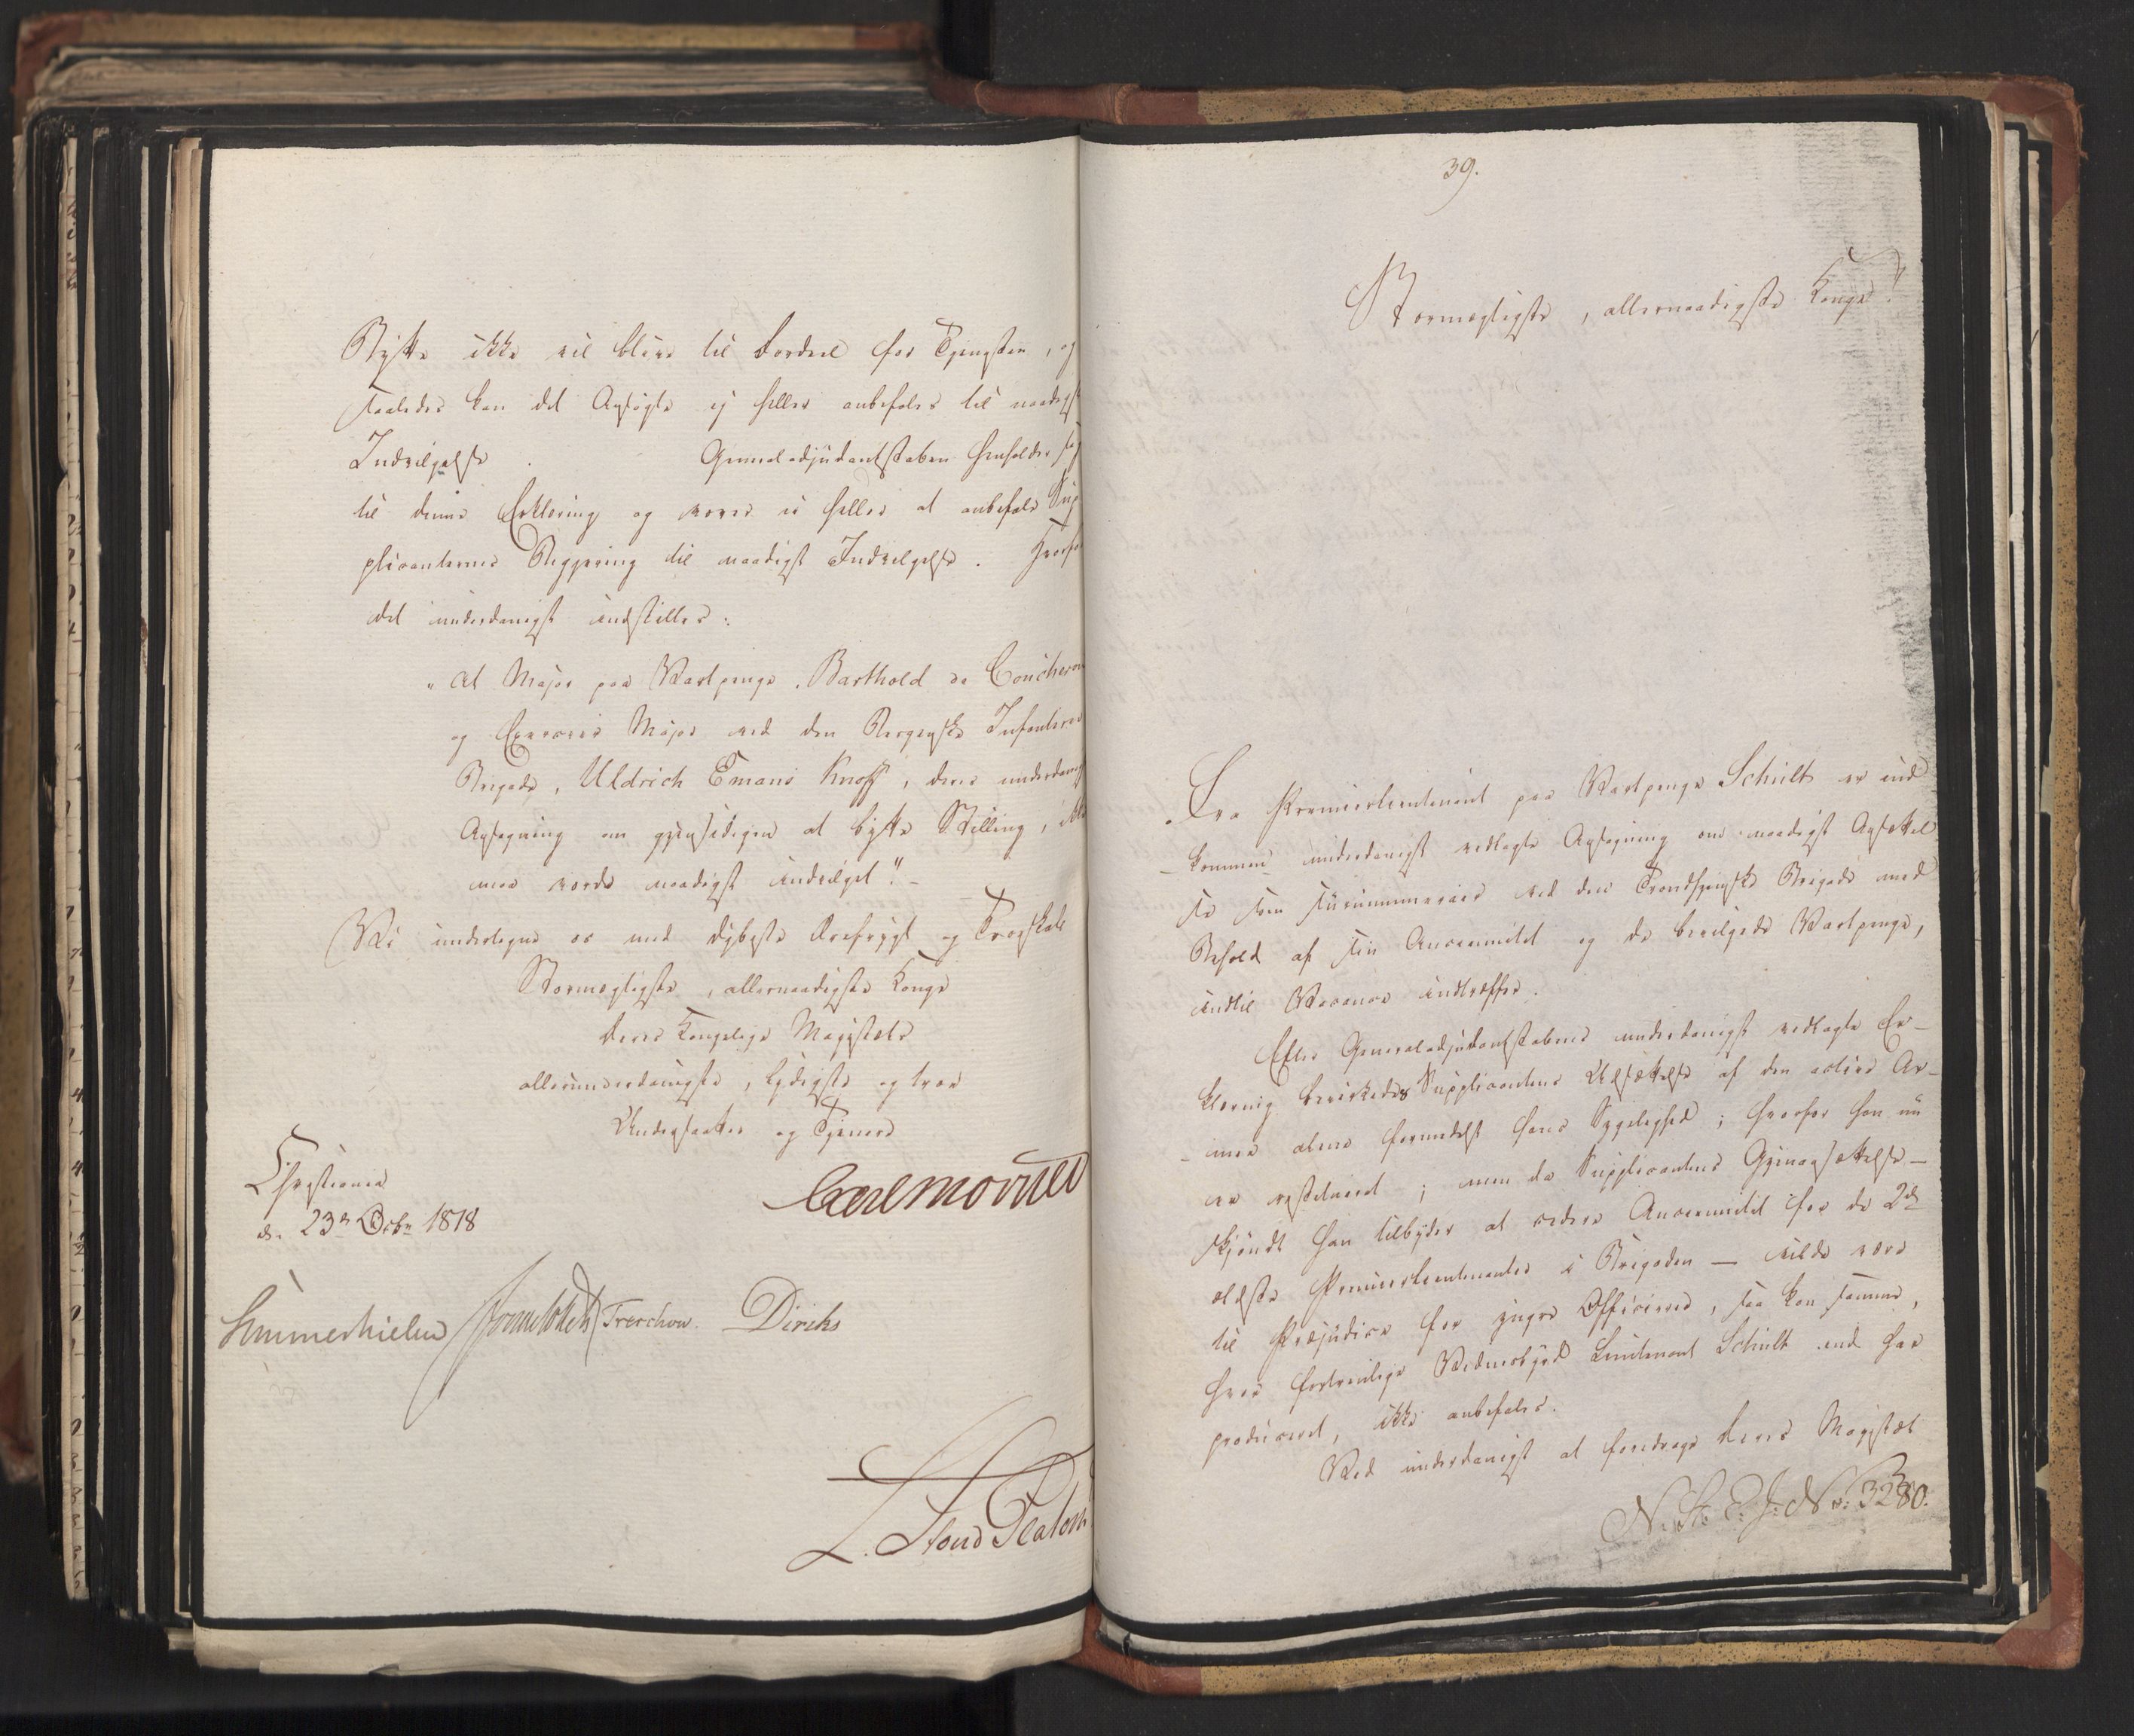 Bytte ikke vil blive til Fordeel for Tjenesten, og
saaledes kan det Ansøgte ej heller anbefales til naadigst
Indvilgelse. Generaladjudantstaben henholder sig
til denne Erklæring og vover ei heller at anbefale Sup
plicanternes Begjæring til naadigst Indvilgelse. Hvorfor
det underdanigst indstilles:
"At Major paa Vartpenge, Barthold de Coucheron
og Exerceer Major ved den Bergenske Infanterie
Brigade, Uldrich Emanis Knoff, deres underdanigst
Ansøgning om gjensidigen at bytte Stilling, ikke
maa vorde naadigst indvilget." -
Vi undertegne os med dybeste Ærefrygt og Troeskab
Stormægtigste, allernaadigste Konge
Deres Kongelige Majestæts
allerunderdanigste, lydigste og troe
Undersaatter og Tjenere
Christiania
d. 23de Octbr 1818
Carl Mörner
Sommerhielm Treschow. Diriks
L. Stoud Platou
39.
Stormægtigste, allernaadigste Konge!
Fra Premierlieutenant paa Vartpenge Schult er ind
kommen underdanigst vedlagte Ansøgning om naadigst Ansættel
se som surnummerair ved den Trondhjemske Brigade med
Behold af sin Anciennitet og de bevilgede Vartpenge,
indtil Vacance indtræffer.
Efter Generaladjudantstabens underdanigst vedlagte Er-
klæring bevirkedes Supplicantens Udsættelse af den active Ar-
mee alene formedelst hans Sygelighed; hvorfor han nu
er restitueret; men da Supplicantens Gjenansættelse -
skjøndt han tilbyder at cedere Anciennitet for de 2de
ældste Premierlieutenanter i Brigaden - vilde være
til Præjudice for yngre Officierer, saa kan samme,
hvor fortrinlige Vidnesbyrd Lieutenant Schult end har
produceret, ikke anbefales.
Ved underdanigst at foredrage Deres Majestæt
N. St. E. J. No: 3280.